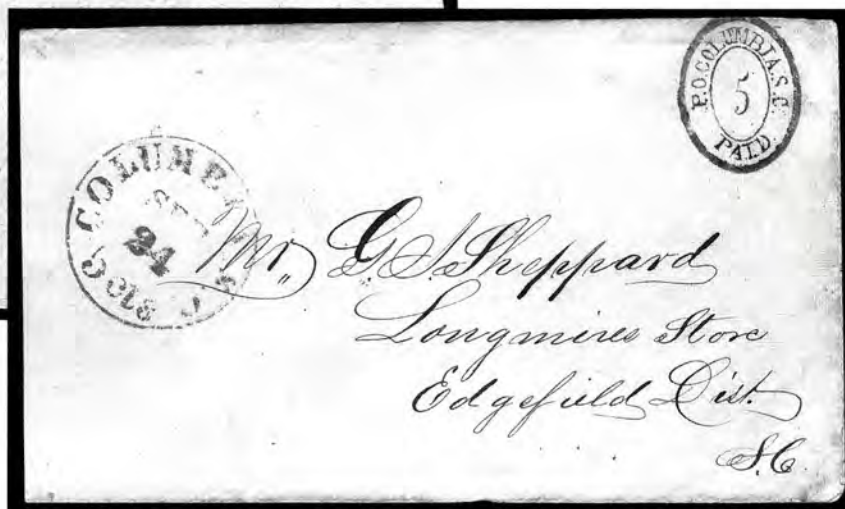 P.O. COLUMBIA. S.C.
5
PAID.
24
5 cts
Mr. G. S. Sheppard
Longmires Store
Edgefield Dist.
S.C.